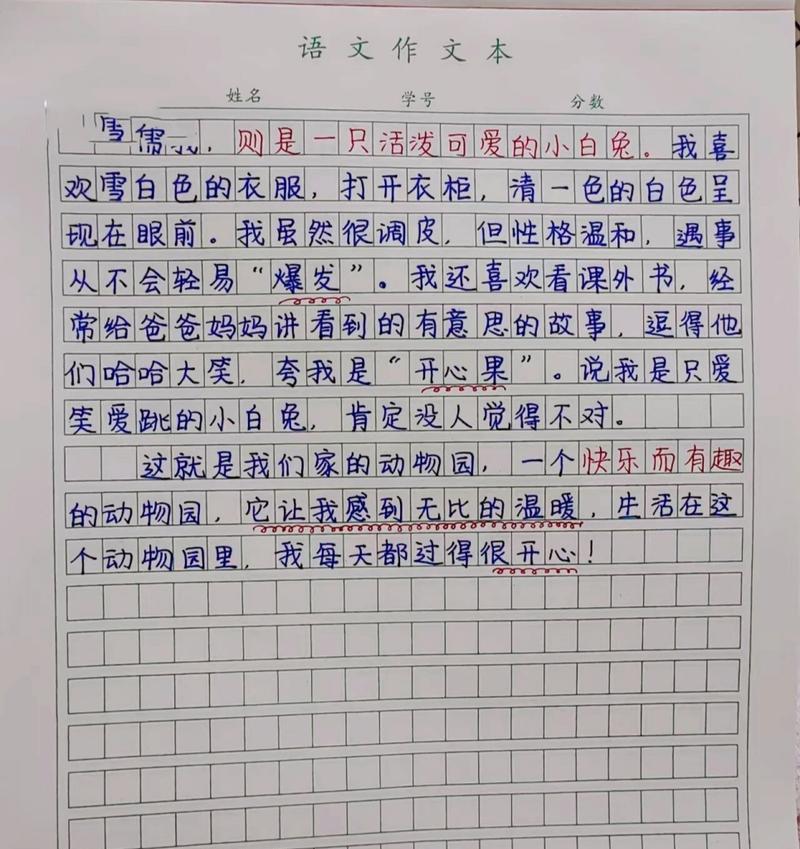 语文作文本
姓名 学号 分数
，则是一只活泼可爱的小白兔。我喜
欢雪白色的衣服，打开衣柜，清一色的白色呈
现在眼前。我虽然很调皮，但性格温和，遇事
从不会轻易“爆发”。我还喜欢看课外书，经
常给爸爸妈妈讲看到的有意思的故事，逗得他
们哈哈大笑，夸我是“开心果”。说我是只爱
笑爱跳的小白兔，肯定没人觉得不对。
这就是我们家的动物园，一个快乐而有趣
的动物园，它让我感到无比的温暖，生活在这
个动物园里，我每天都过得很开心！